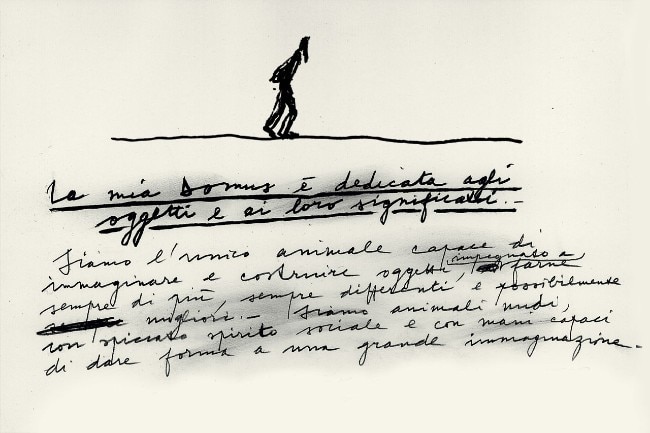 La mia Domus è dedicata agli
oggetti e ai loro significati.-
Siamo l'unico animale capace di
immaginare e costruire oggetti, impegnato a farne
sempre di più, sempre differenti e possibilmente
migliori.- Siamo animali nudi,
con spiccato spirito sociale e con mani capaci
di dare forma a una grande immaginazione.-